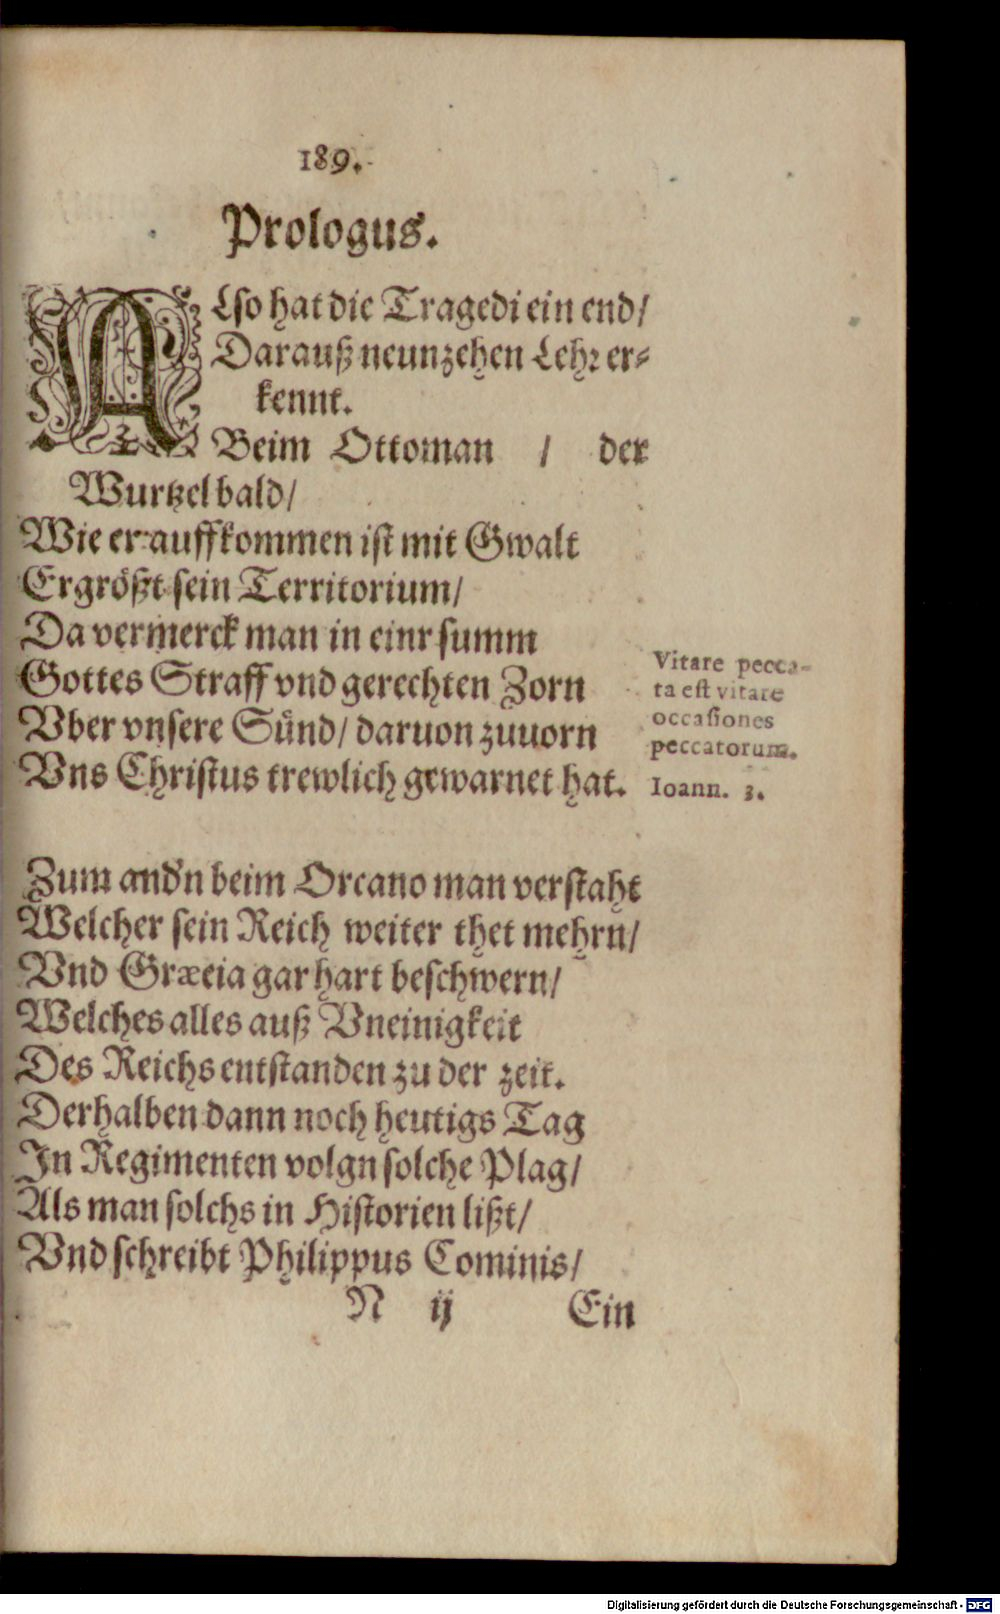 189.
Prologus.
ALso hat die Tragedi ein end/
Darauß neunzehen Lehr er-
kennt.
Beim Ottoman / der
Wurtzel bald/
Wie er auffkommen ist mit Gwalt
Ergrößt sein Territorium/
Da vermerck man in einr summ
Gottes Straff vnd gerechten Zorn
Vber vnsere Sünd/ daruon zuuorn
Vns Christus trewlich gewarnet hat.
Vitare pecca-
ta est vitare
occasiones
peccatorum.
Ioann. 3.
Zum and'n beim Orcano man verstaht
Welcher sein Reich weiter thet mehrn/
Vnd Græcia gar hart beschwern/
Welches alles auß Vneinigkeit
Des Reichs entstanden zu der zeit.
Derhalben dann noch heutigs Tag
In Regimenten volgn solche Plag/
Als man solchs in Historien lißt/
Vnd schreibt Philippus Cominis/
N ij Ein
Digitalisierung gefördert durch die Deutsche Forschungsgemeinschaft - DFG